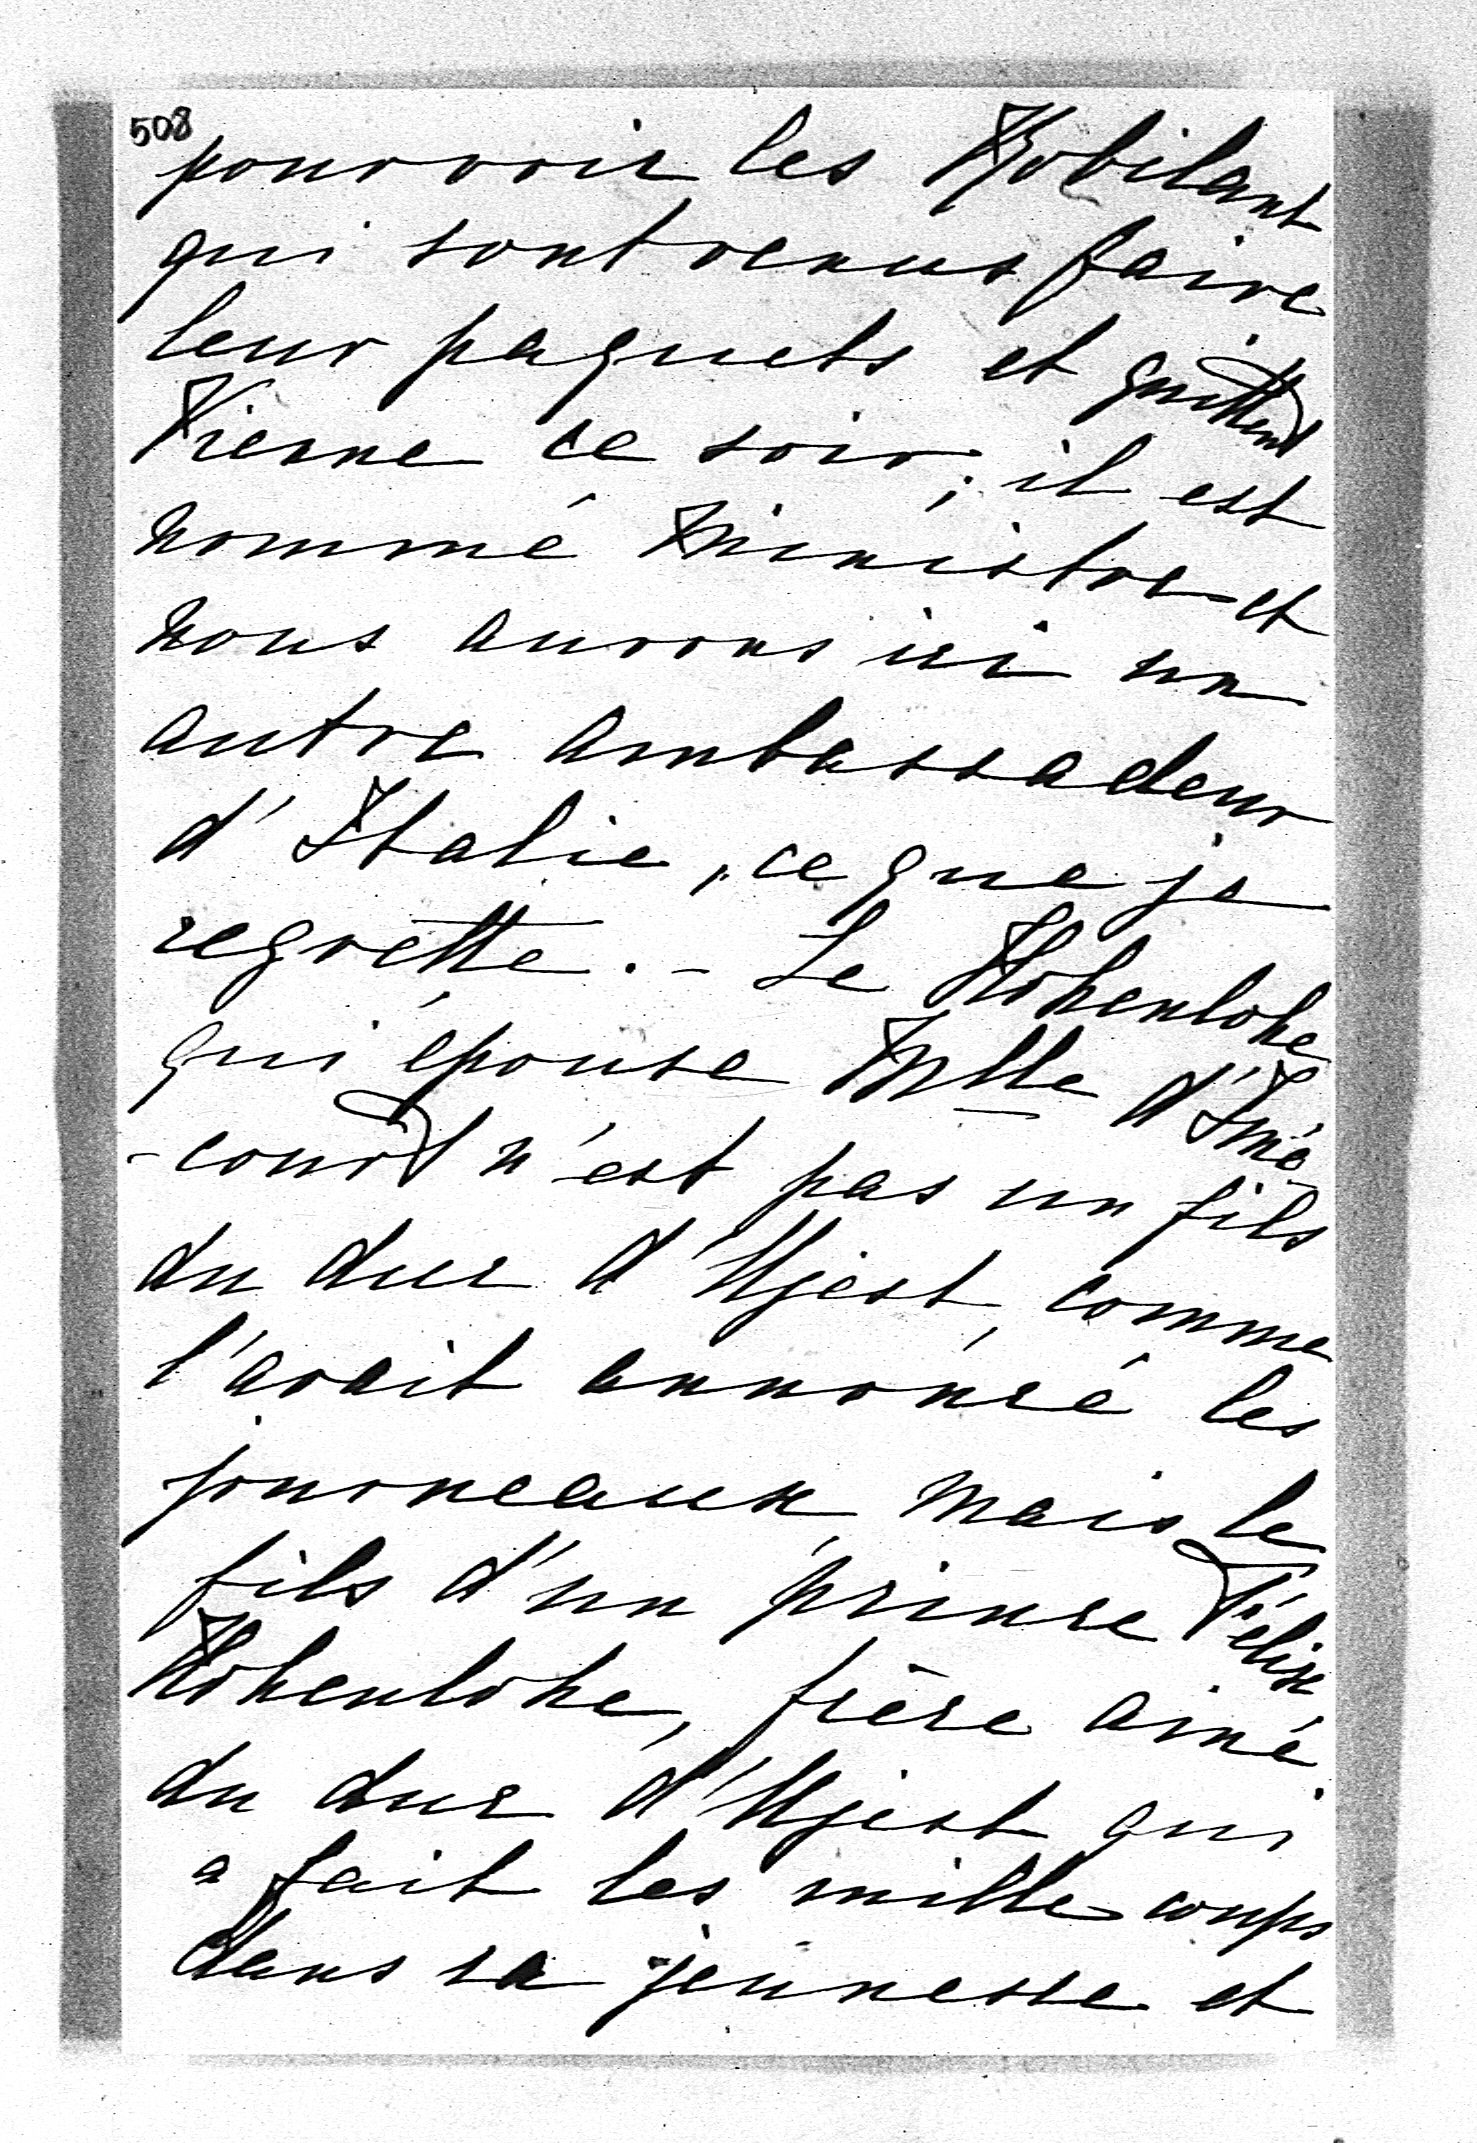 508
pour voir les Robilant
qui sont venus faire
leur paquets et quittent
Vienne ce soir; il est
nommé Ministre et
nous aurons ici un
autre ambassadeur
d'Italie, ce que je
regrette. - Le Hohenlohe
qui épouse Mlle d'Imé-
-court n'est pas un fils
du duc d'Ujest, comme
l'avait annoncé les
journeaux, mais le
fils d'un prince Félix
Hohenlohe, frère ainé
du duc d'Ujest qui
a fait les mille coups
dans sa jeunesse et